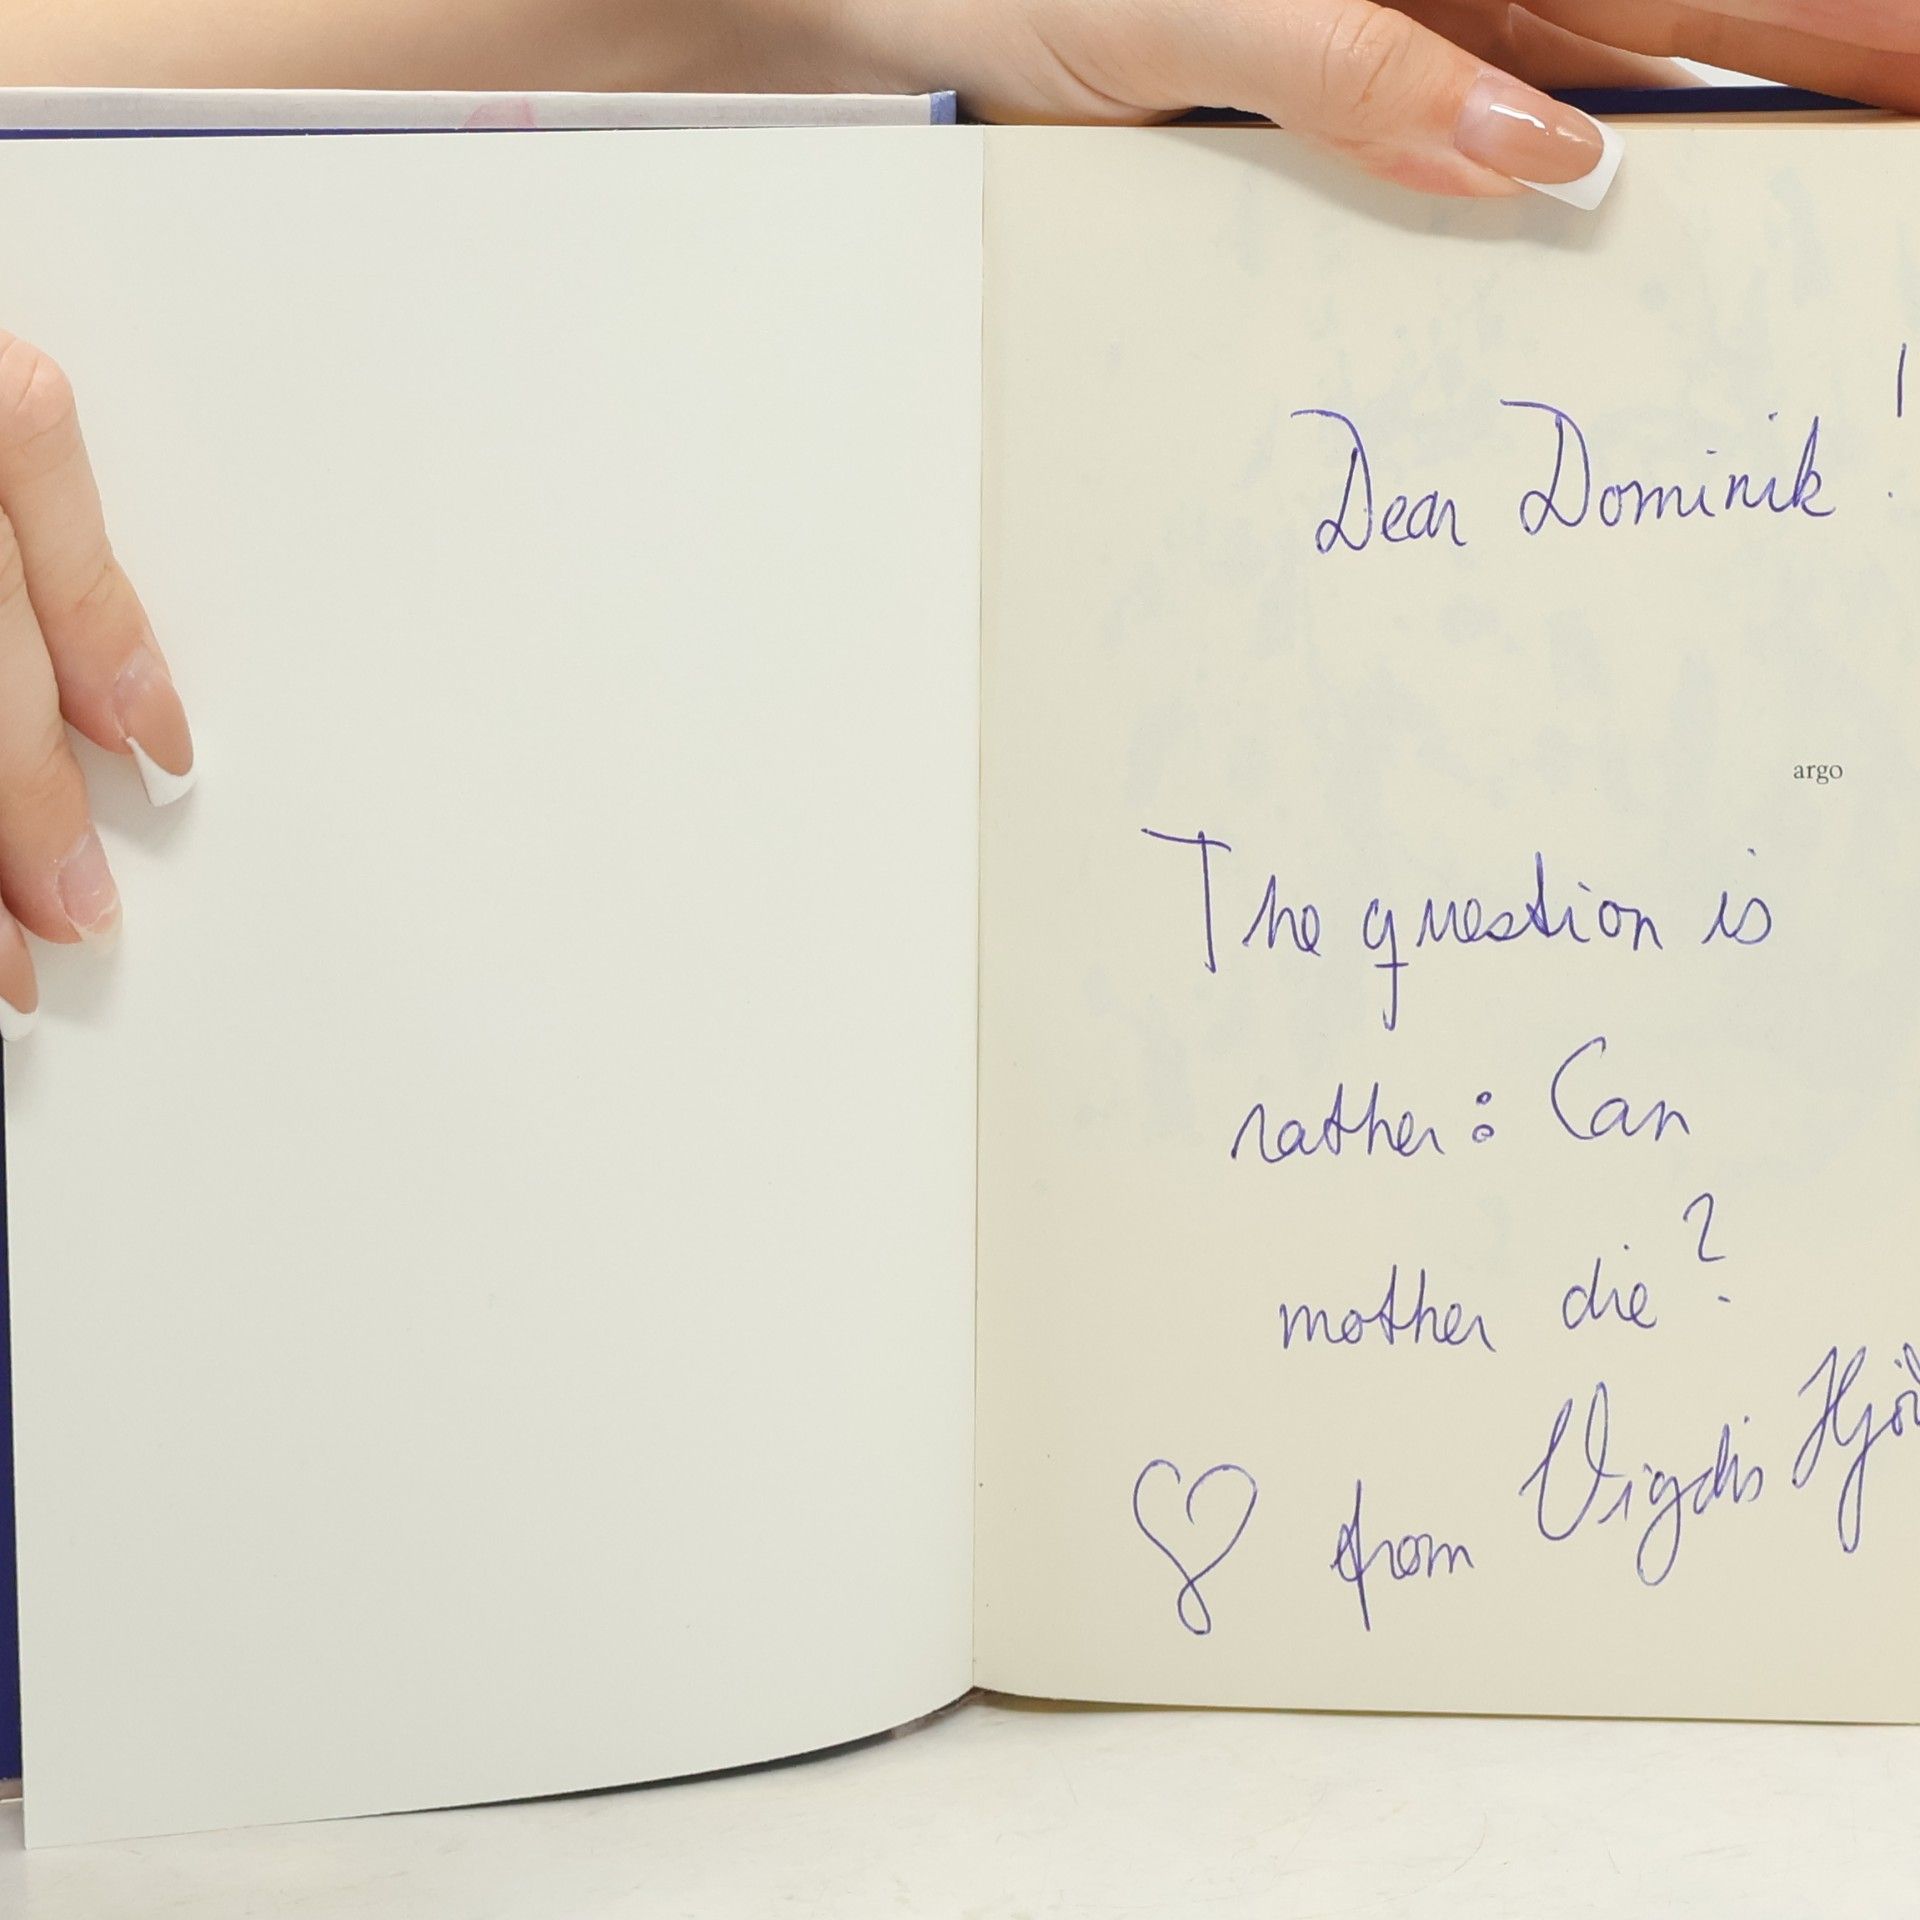 Dear Dominik!
argo
The question is
rather: Can
mother die?
♡ from Vigdis